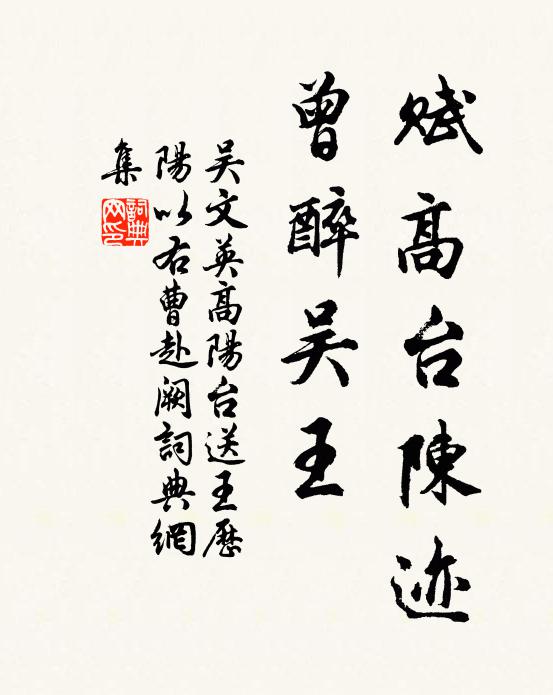 赋高台陳迹
曾醉吴王
吴文英高陽台送王歷
陽以右曹赴阙詞典網
集
詞典
网印